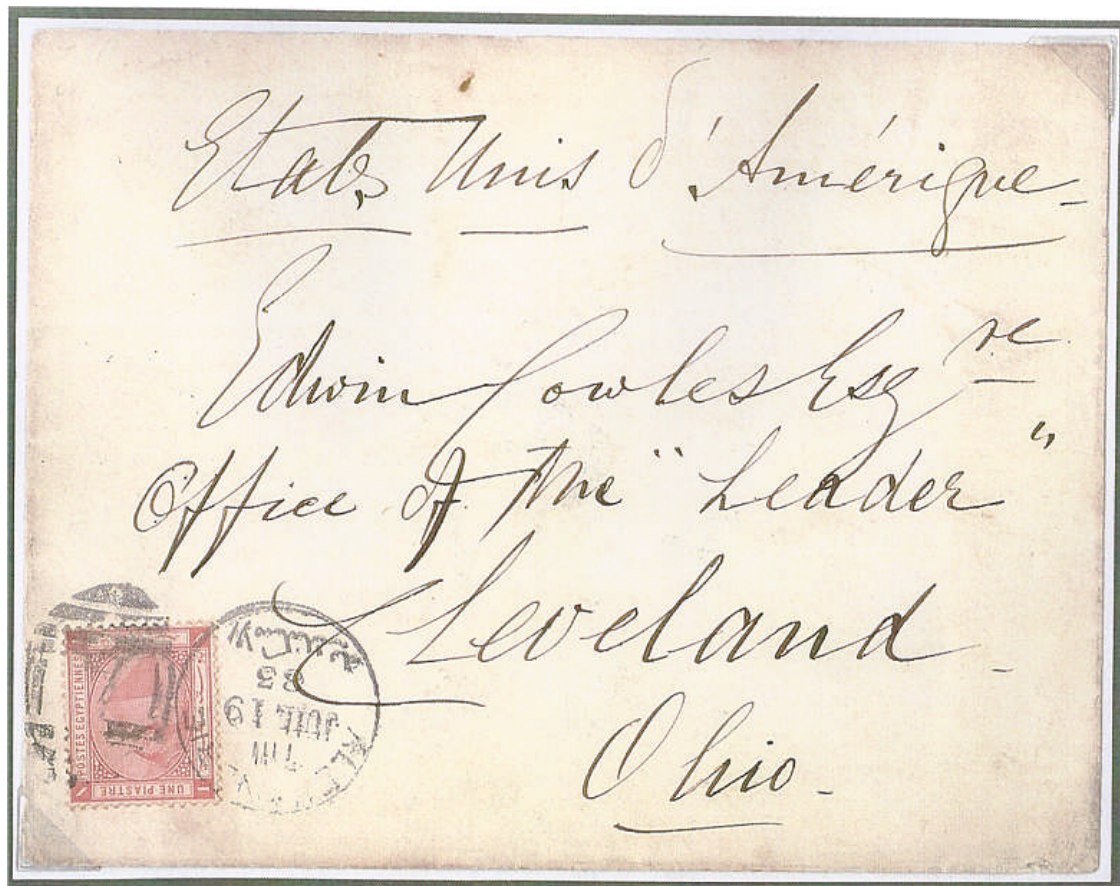 Etats Unis d'Amérique
Edwin Cowles Esqre
Office of the "Leader"
Cleveland
Ohio
POSTES EGYPTIENNES
UNE PIASTRE
JUIL 19